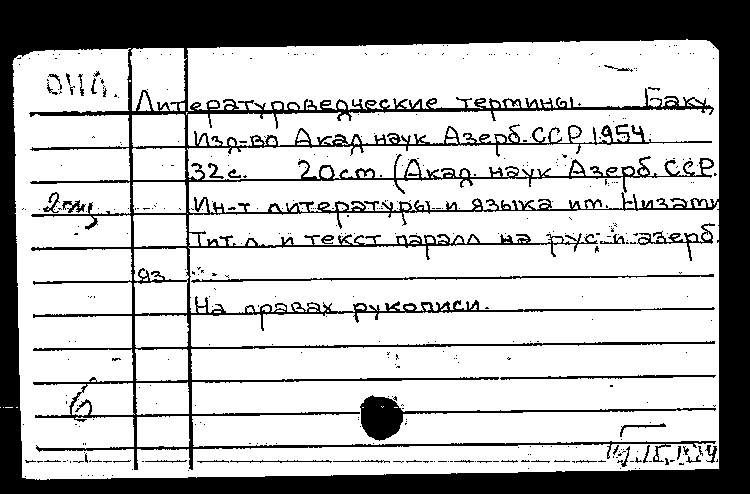 Литературоведческие термины. Баку,
Изд-во Акад. наук Азерб. ССР, 1954.
32 с. 20 cm. (Акад. наук Азерб. ССР.
Ин-т литературы и языка им. Низами
Тит. л. и текст паралл на рус. и азерб.
яз
На правах рукописи.
6